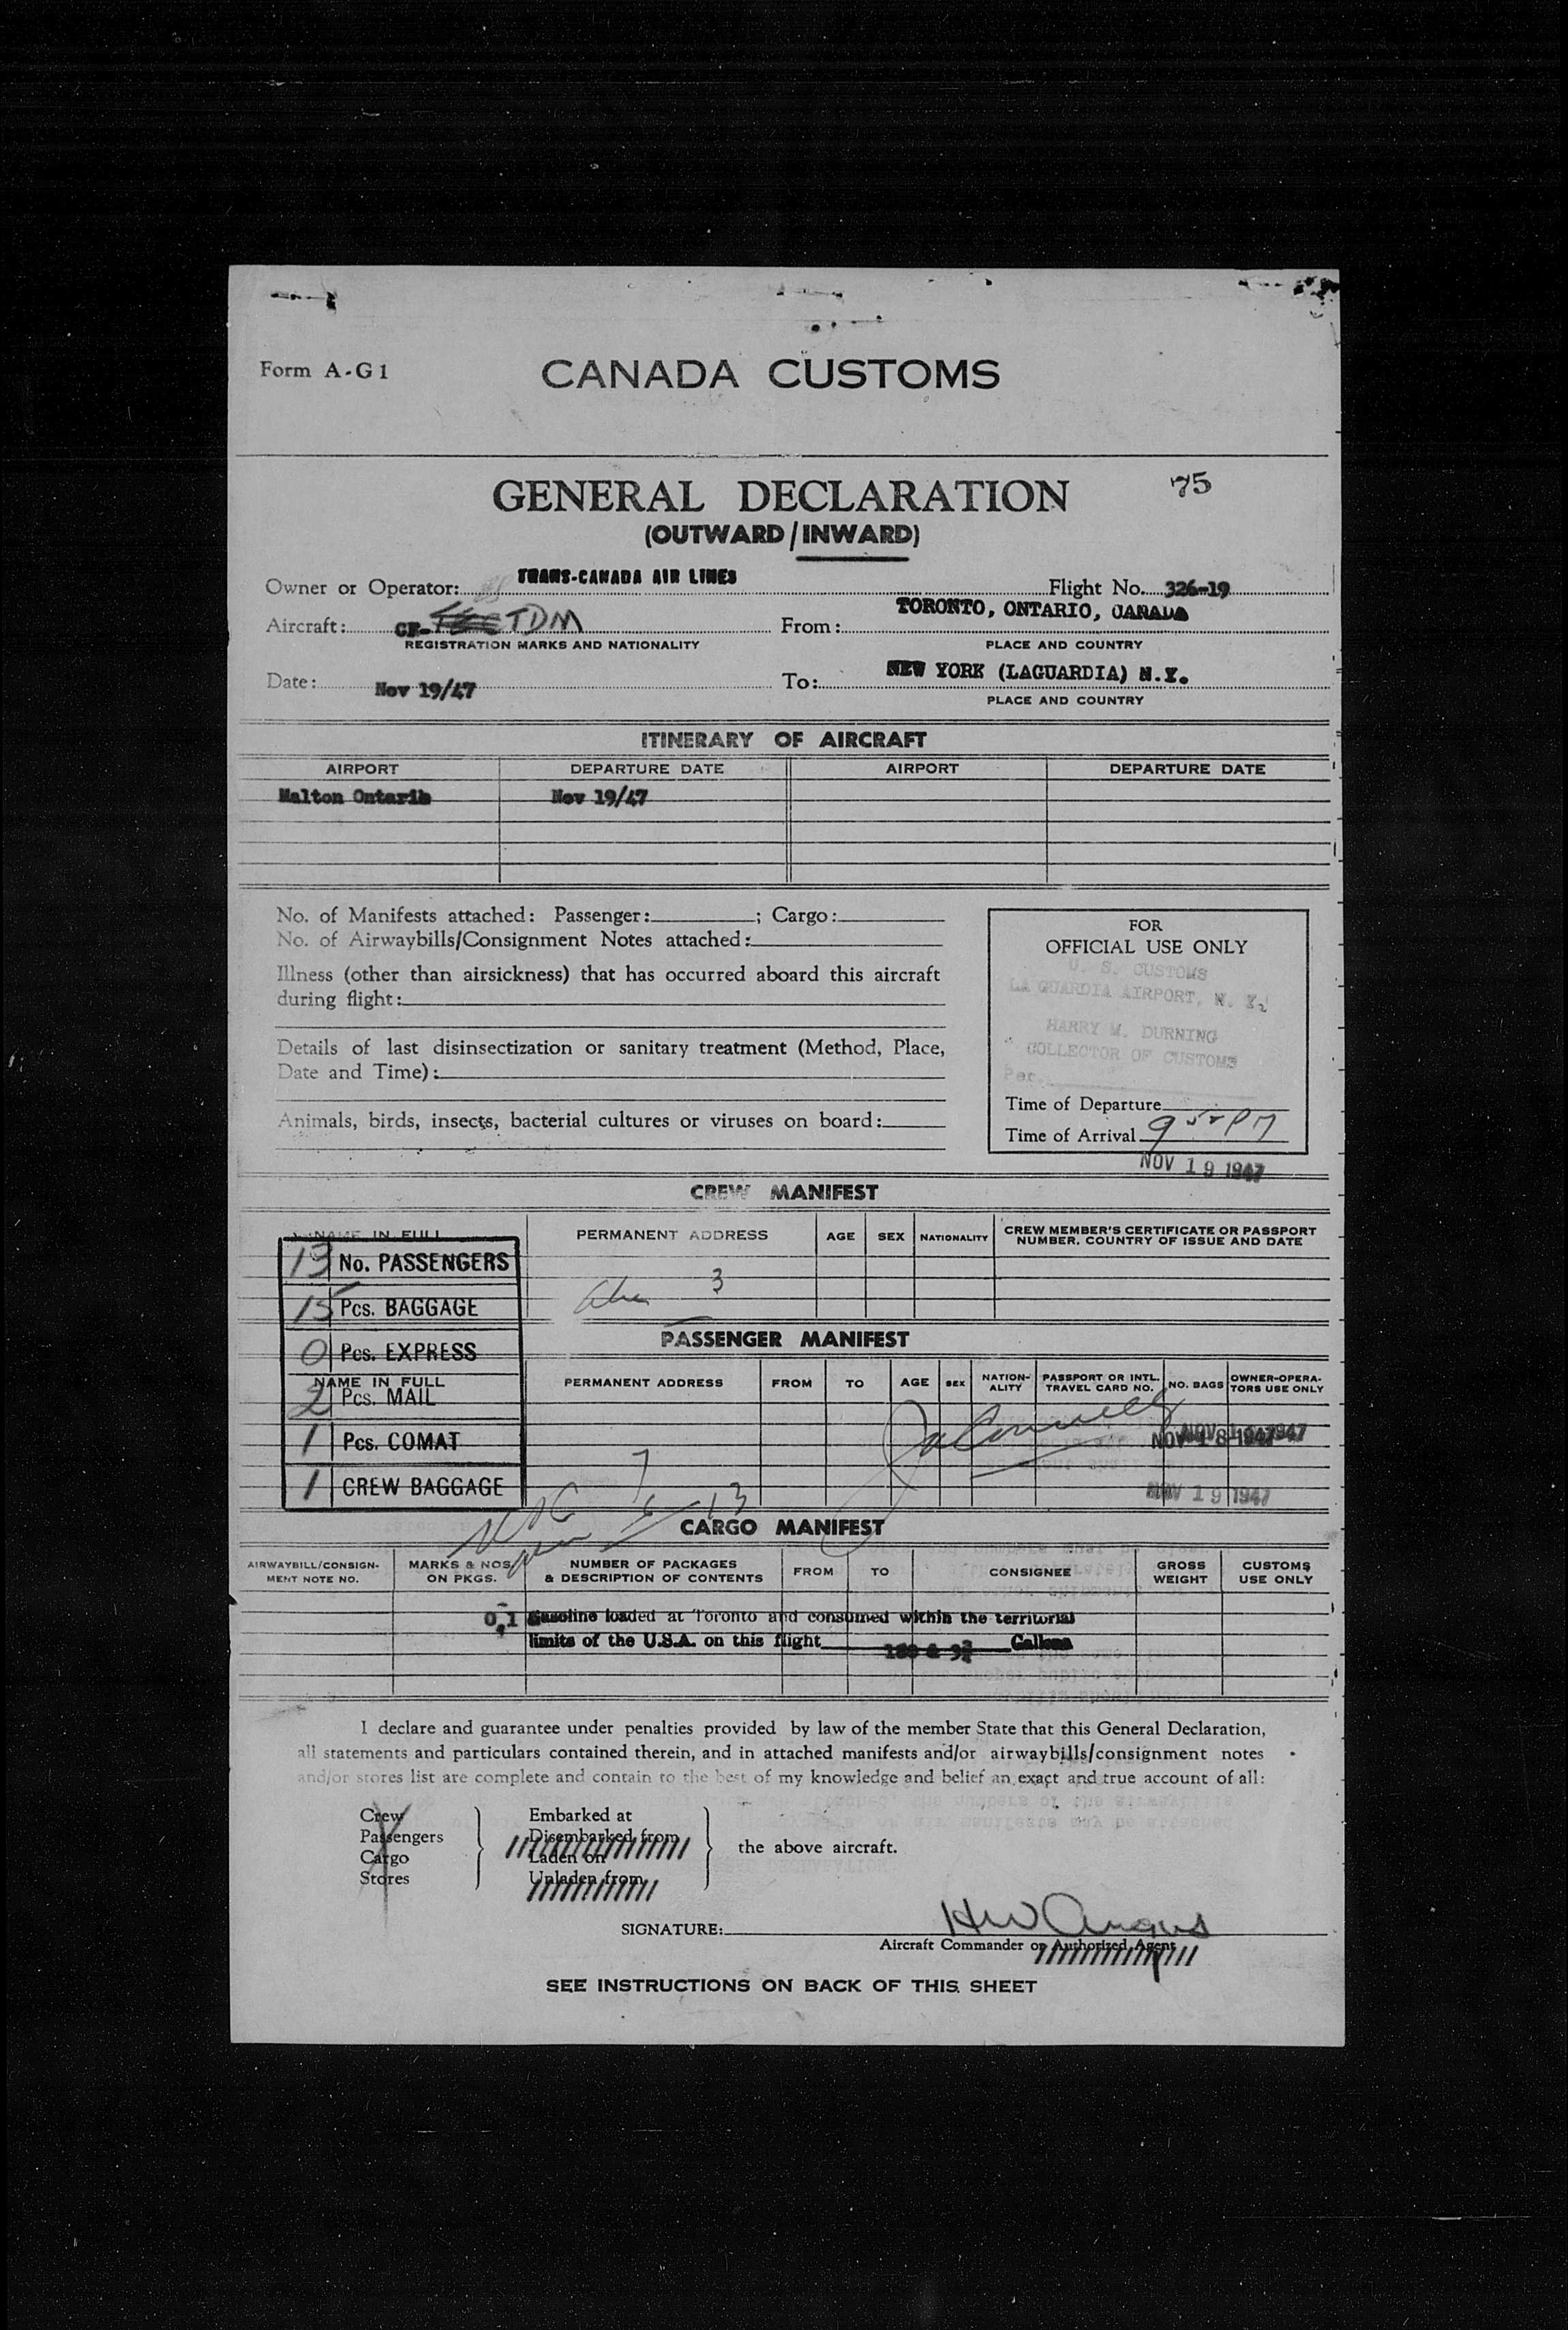 Form A-G1
CANADA CUSTOMS
75
GENERAL DECLARATION
(OUTWARD/INWARD)
Owner or Operator: TRANS-CANADA AIR LINES Flight No. 326-19
Aircraft: CF- TDM From: TORONTO, ONTARIO, CANADA
REGISTRATION MARKS AND NATIONALITY PLACE AND COUNTRY
Date: Nov 19/47 To: NEW YORK (LAGUARDIA) N.Y.
PLACE AND COUNTRY
ITINERARY OF AIRCRAFT
AIRPORT DEPARTURE DATE AIRPORT DEPARTURE DATE
Malton Ontario Nov 19/47
No. of Manifests attached: Passenger: ; Cargo:
No. of Airwaybills/Consignment Notes attached:
Illness (other than airsickness) that has occurred aboard this aircraft
during flight:
Details of last disinsectization or sanitary treatment (Method, Place,
Date and Time):
Animals, birds, insects, bacterial cultures or viruses on board:
FOR
OFFICIAL USE ONLY
U. S. CUSTOMS
LA GUARDIA AIRPORT, N. Y.
HARRY M. DURNING
COLLECTOR OF CUSTOMS
Per.
Time of Departure
Time of Arrival 9 55 PM
NOV 19 1947
CREW MANIFEST
NAME IN FULL PERMANENT ADDRESS AGE SEX NATIONALITY CREW MEMBER'S CERTIFICATE OR PASSPORT
NUMBER, COUNTRY OF ISSUE AND DATE
13 No. PASSENGERS
3
15 Pcs. BAGGAGE
PASSENGER MANIFEST
0 Pcs. EXPRESS
NAME IN FULL PERMANENT ADDRESS FROM TO AGE SEX NATION-
ALITY PASSPORT OR INTL.
TRAVEL CARD NO. NO. BAGS OWNER-OPERA-
TORS USE ONLY
2 Pcs. MAIL
1 Pcs. COMAT
NOV 18 1947
7
1 CREW BAGGAGE
NOV 19 1947
6 13
CARGO MANIFEST
AIRWAYBILL/CONSIGN-
MENT NOTE NO. MARKS & NOS.
ON PKGS. NUMBER OF PACKAGES
& DESCRIPTION OF CONTENTS FROM TO CONSIGNEE GROSS
WEIGHT CUSTOMS
USE ONLY
Gasoline loaded at Toronto and consumed within the territorial
limits of the U.S.A. on this flight Gallons
I declare and guarantee under penalties provided by law of the member State that this General Declaration,
all statements and particulars contained therein, and in attached manifests and/or airwaybills/consignment notes
and/or stores list are complete and contain to the best of my knowledge and belief an exact and true account of all:
Crew Embarked at
Passengers Disembarked from
Cargo Laden on
Stores Unladen from
the above aircraft.
SIGNATURE: HW Angus
Aircraft Commander or Authorized Agent
SEE INSTRUCTIONS ON BACK OF THIS SHEET